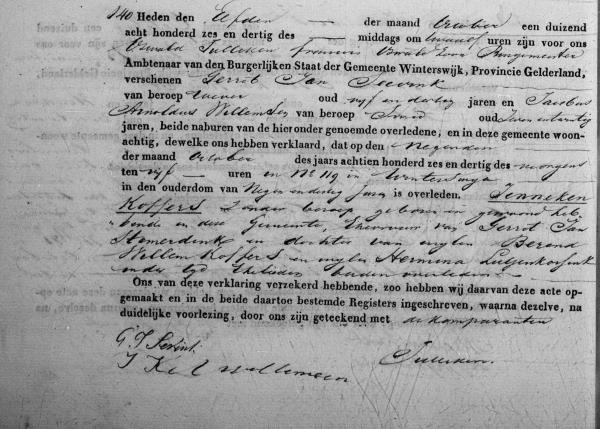 140 Heden den Elfden der maand October een duizend
acht honderd zes en dertig des middags om twaalf uren zijn voor ons
Ambtenaar van den Burgerlijken Staat der Gemeente Winterswijk, Provincie Gelderland,
verschenen Gerrit Jan
van beroep oud vijf en dertig jaren en Jacobus
Arnoldus Willemsen van beroep Smid oud
jaren, beide naburen van de hieronder genoemde overledene, en in deze gemeente woon-
achtig, dewelke ons hebben verklaard, dat op den Negenden
der maand October des jaars achtien honderd zes en dertig des morgens
ten vijf uren en No 119 in Winterswijk
in den ouderdom van Negen en dertig Jaren is overleden. Jenneken
Koffers Zonder beroep geboren en gewoond heb-
bende in deze Gemeente, Huisvrouw van Gerrit Jan
en dochter van wylen Berend
Willem Koffers en wylen Hermina
in der tyd Ehelieden beiden overleden
Ons van deze verklaring verzekerd hebbende, zoo hebben wij daarvan deze acte op-
gemaakt en in de beide daartoe bestemde Registers ingeschreven, waarna dezelve, na
duidelijke voorlezing, door ons zijn geteekend met de komparanten
G. J.
Willemsen